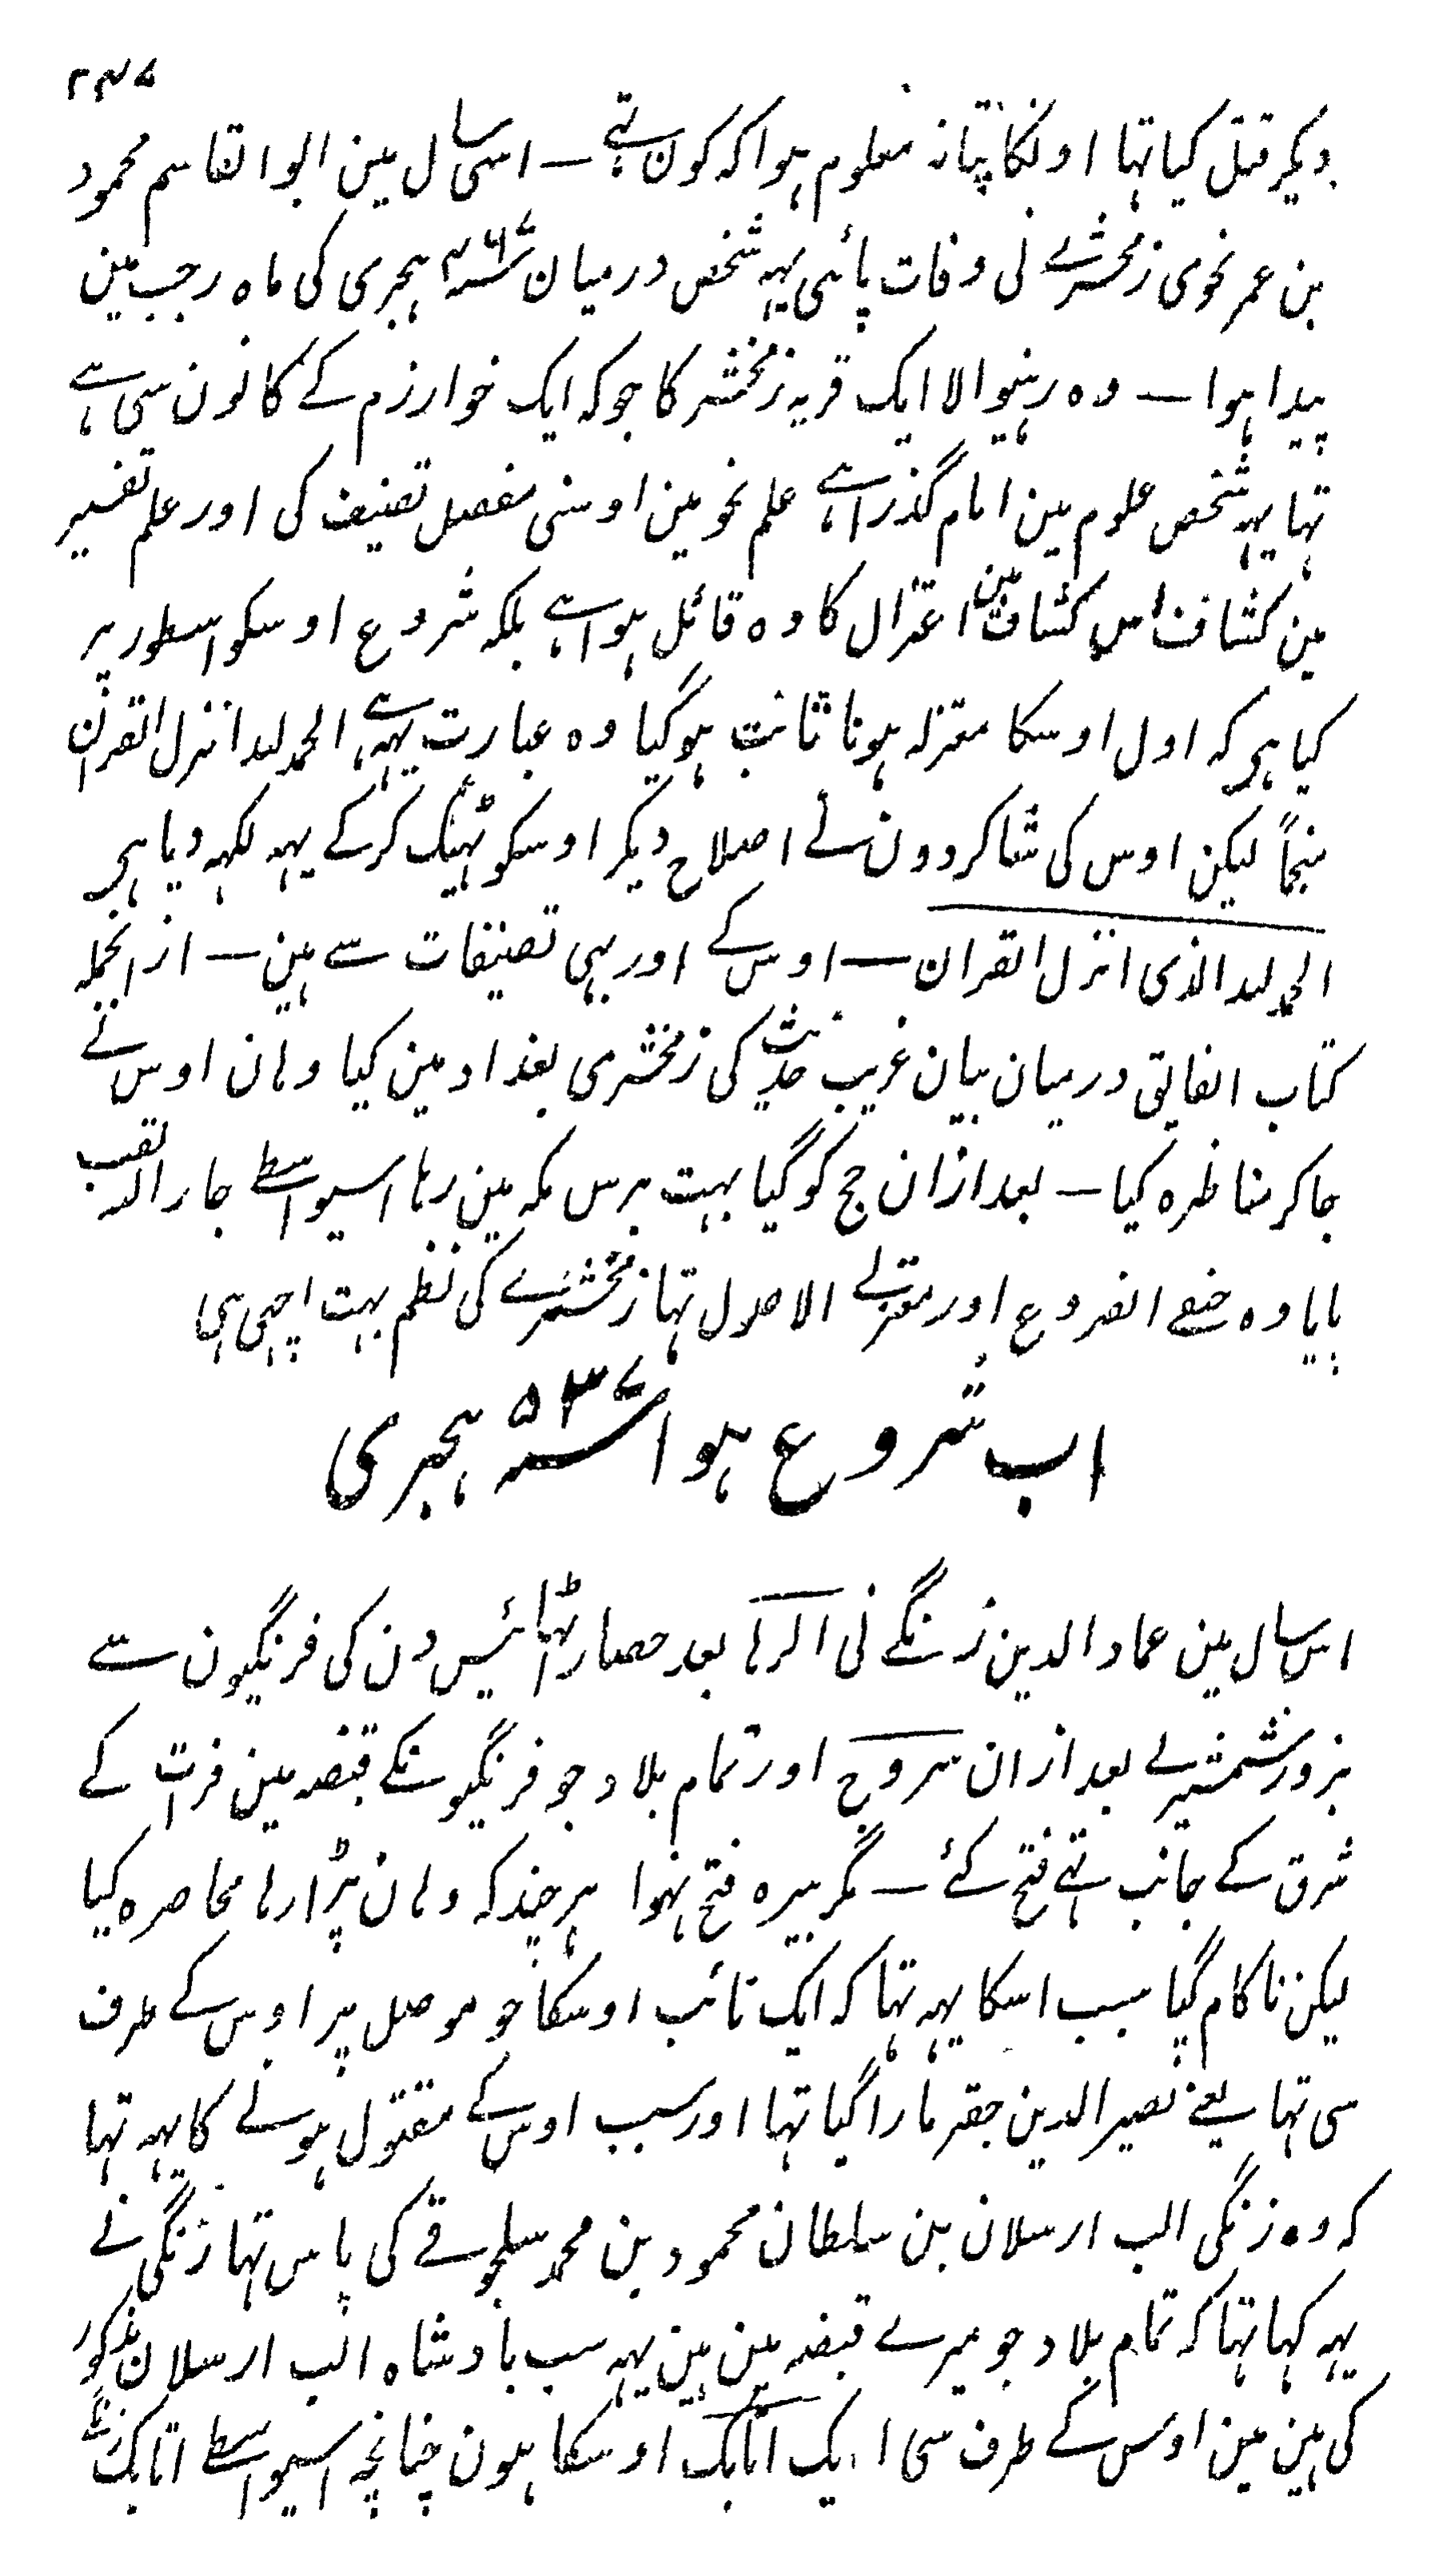 ۲۳۷
دیکر قتل کیا تہا اونکا پتا نہ معلوم ہوا کہ کون تہے — اسی سال مین ابو القاسم محمود
بن عمر نحوی زمخشرے نی وفات پائی یہہ شخص درمیان ۴۶۷ سنہ ہجری کی ماہ رجب مین
پیدا ہوا — وہ رہنیوالا ایک قریہ زمخشر کا جو کہ ایک خوارزم کے کانون سی ہے
تہا یہہ شخص علوم مین امام گذرا ہے علم نحو مین اوسنی مفصل تصنیف کی اور علم تفسیر
مین کشاف اس کشاف مین اعتزال کا وہ قائل ہوا ہے بلکہ شروع اوسکو اسطور پر
کیا ہی کہ اول اوسکا معتزلہ ہونا ثابت ہوگیا وہ عبارت یہہ ہے الحمد للہ انزل القران
منجماً لیکن اوس کی شاکردون نے اصلاح دیکر اوسکو ٹہیک کرکے یہہ لکہہ دیا ہی
الحمد للہ الذی انزل القران — اوس کے اور بہی تصنیفات سے ہین — ازانجملہ
کتاب الفایق درمیان بیان غریب حدیث کی زمخشری بغداد مین کیا وہان اوس نے
جاکر مناظرہ کیا — بعد ازان حج کو گیا بہت برس مکہ مین رہا اسیواسطے جار اللہ لقب
پایا وہ حنفے الفروع اور معتزلے الاصول تہا زمخشرے کی نظم بہت اچہی ہی
اب شروع ہوا ۵۳۷ سنہ ہجری
اس سال مین عماد الدین زنگے نی الرہا بعد حصار اٹہائیس دن کی فرنگیون سے
بزور شمشیر لے بعد ازان سروج اور تمام بلاد جو فرنگیونکے قبضہ مین فرات کے
شرق کے جانب تہے فتح کئے — مگر بیرہ فتح نہوا ہر چند کہ وہان پڑا رہا محاصرہ کیا
لیکن ناکام گیا سبب اسکا یہہ تہا کہ ایک نائب اوسکا جو موصل پر اوس کے طرف
سی تہا یعنے نصیر الدین جقر مارا گیا تہا اور سبب اوس کے مقتول ہونے کا یہہ تہا
کہ وہ زنگی الب ارسلان بن سلطان محمود بن محمد سلجوقے کی پاس تہا زنگی نے
یہہ کہا تہا کہ تمام بلاد جو میرے قبضہ مین ہین یہہ سب بادشاہ الب ارسلان مذکور
کی ہین مین اوس کے طرف سی ایک اتابک اوسکا ہون چنانچہ اسیواسطے اتابک زنگے